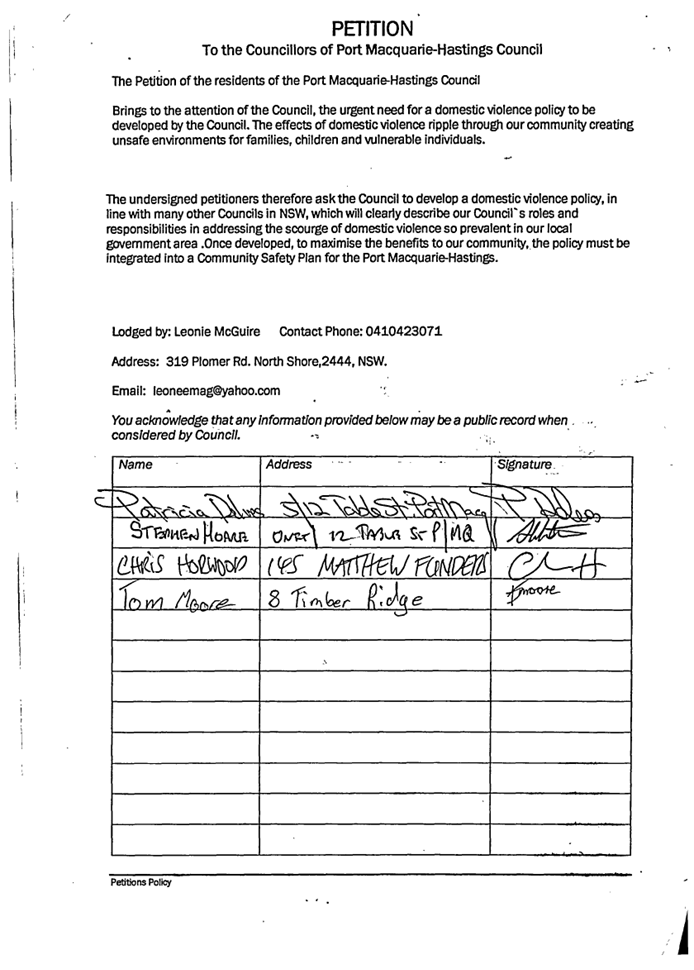 PETITION
To the Councillors of Port Macquarie-Hastings Council
The Petition of the residents of the Port Macquarie-Hastings Council
Brings to the attention of the Council, the urgent need for a domestic violence policy to be
developed by the Council. The effects of domestic violence ripple through our community creating
unsafe environments for families, children and vulnerable individuals.
The undersigned petitioners therefore ask the Council to develop a domestic violence policy, in
line with many other Councils in NSW, which will clearly describe our Council`s roles and
responsibilities in addressing the scourge of domestic violence so prevalent in our local
government area .Once developed, to maximise the benefits to our community, the policy must be
integrated into a Community Safety Plan for the Port Macquarie-Hastings.
Lodged by: Leonie McGuire Contact Phone: 0410423071
Address: 319 Plomer Rd. North Shore,2444, NSW.
Email: leoneemag@yahoo.com
You acknowledge that any information provided below may be a public record when
considered by Council.
Name Address Signature
Patricia 5/12
STEPHEN HOARE 12 ST P/MQ
CHRIS HORWOOD 145 MATTHEW FLINDERS
Tom Moore 8 Timber Ridge Tmoore
Petitions Policy